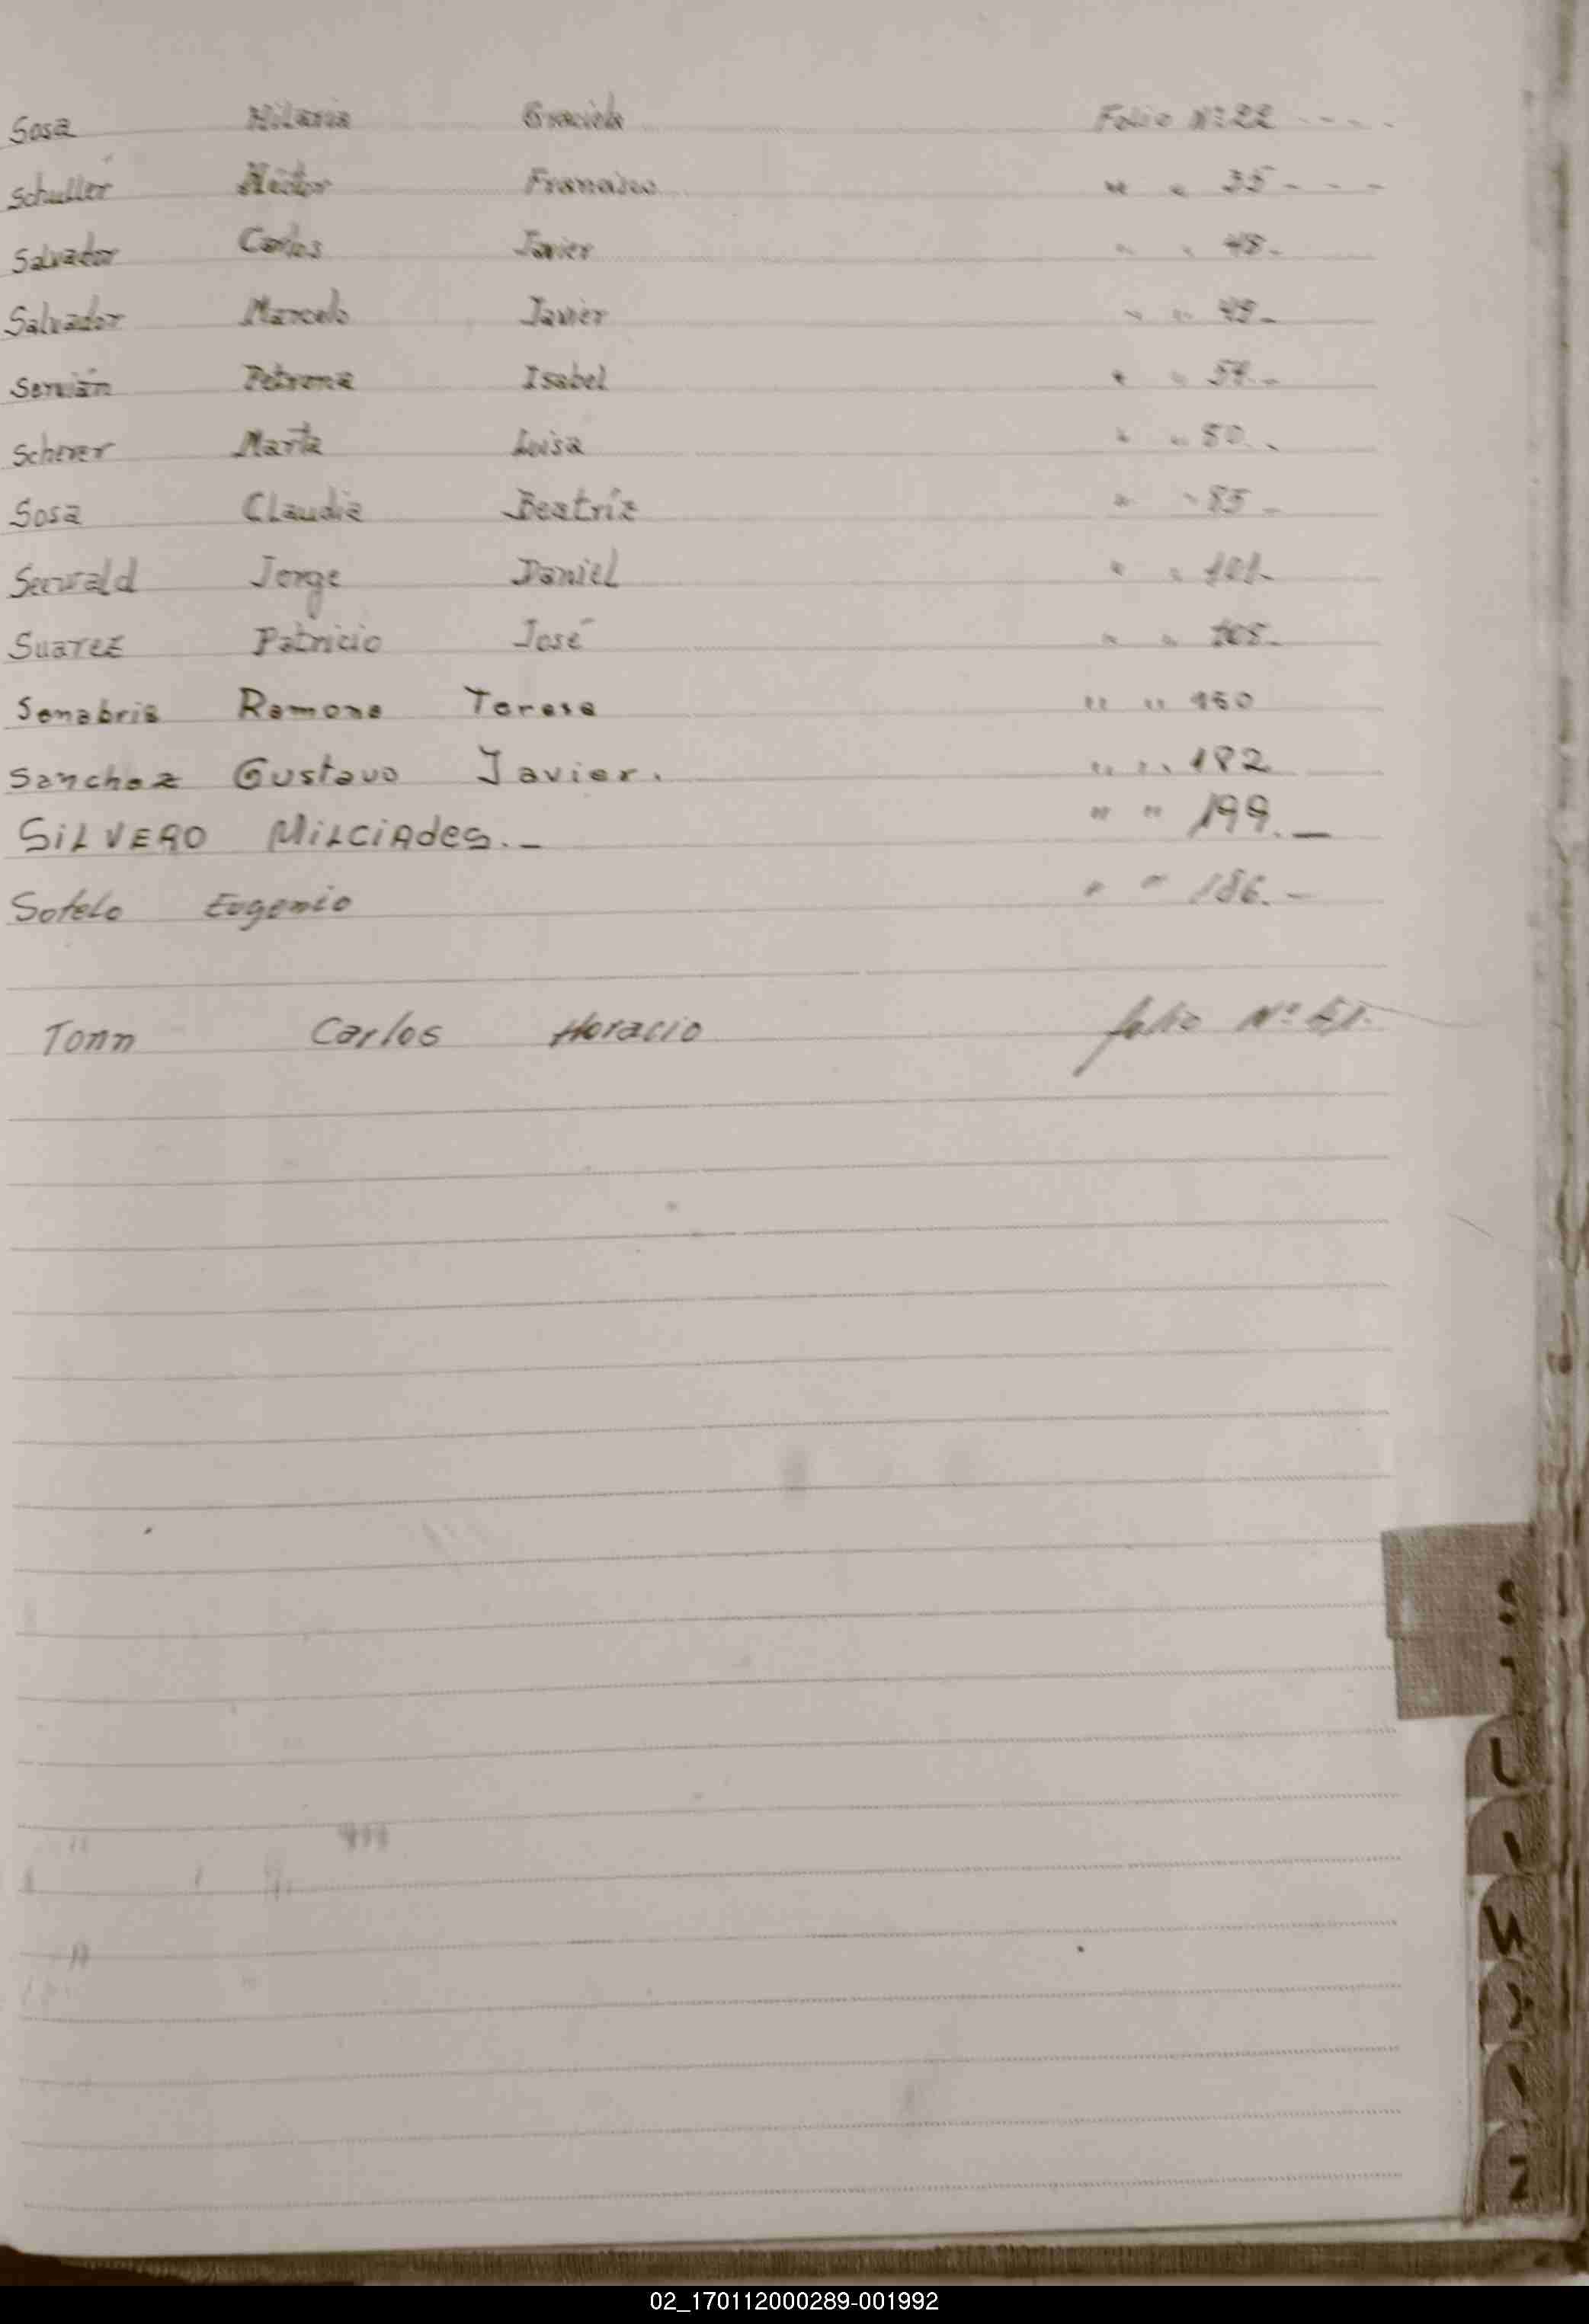 Sosa Hilaria Graciela Folio Nº 22 - - - -
Schuller Héctor Francisco " " 35 - - -
Salvador Carlos Javier " " 48-
Salvador Marcelo Javier " " 49-
Servián Petrona Isabel " "
Scherer Marta Luisa " " 80.-
Sosa Claudia Beatríz " " 85-
Seewald Jorge Daniel " " 101-
Suarez Patricio José " " 105-
Senabria Ramona Teresa " " 150
Sanchez Gustavo Javier. " " 182
SILVERO MILCIAdes.- " " 199.-
Sotelo Eugenio " " 186.-
Tonn Carlos Horacio folio Nº
U
Z
02_170112000289-001992